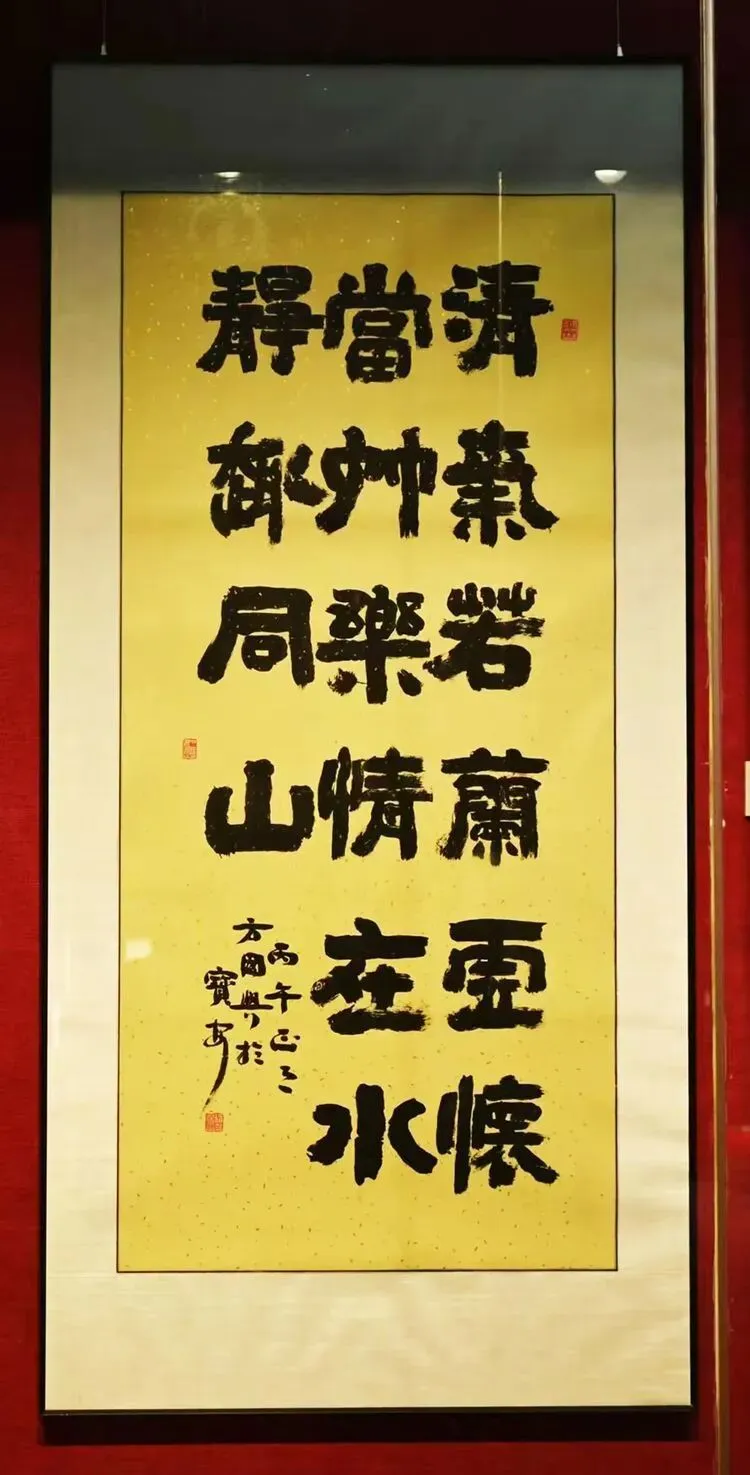 清氣若蘭虛懷
當竹樂情在水
靜趣同山
丙午正月
方國興於
寶安